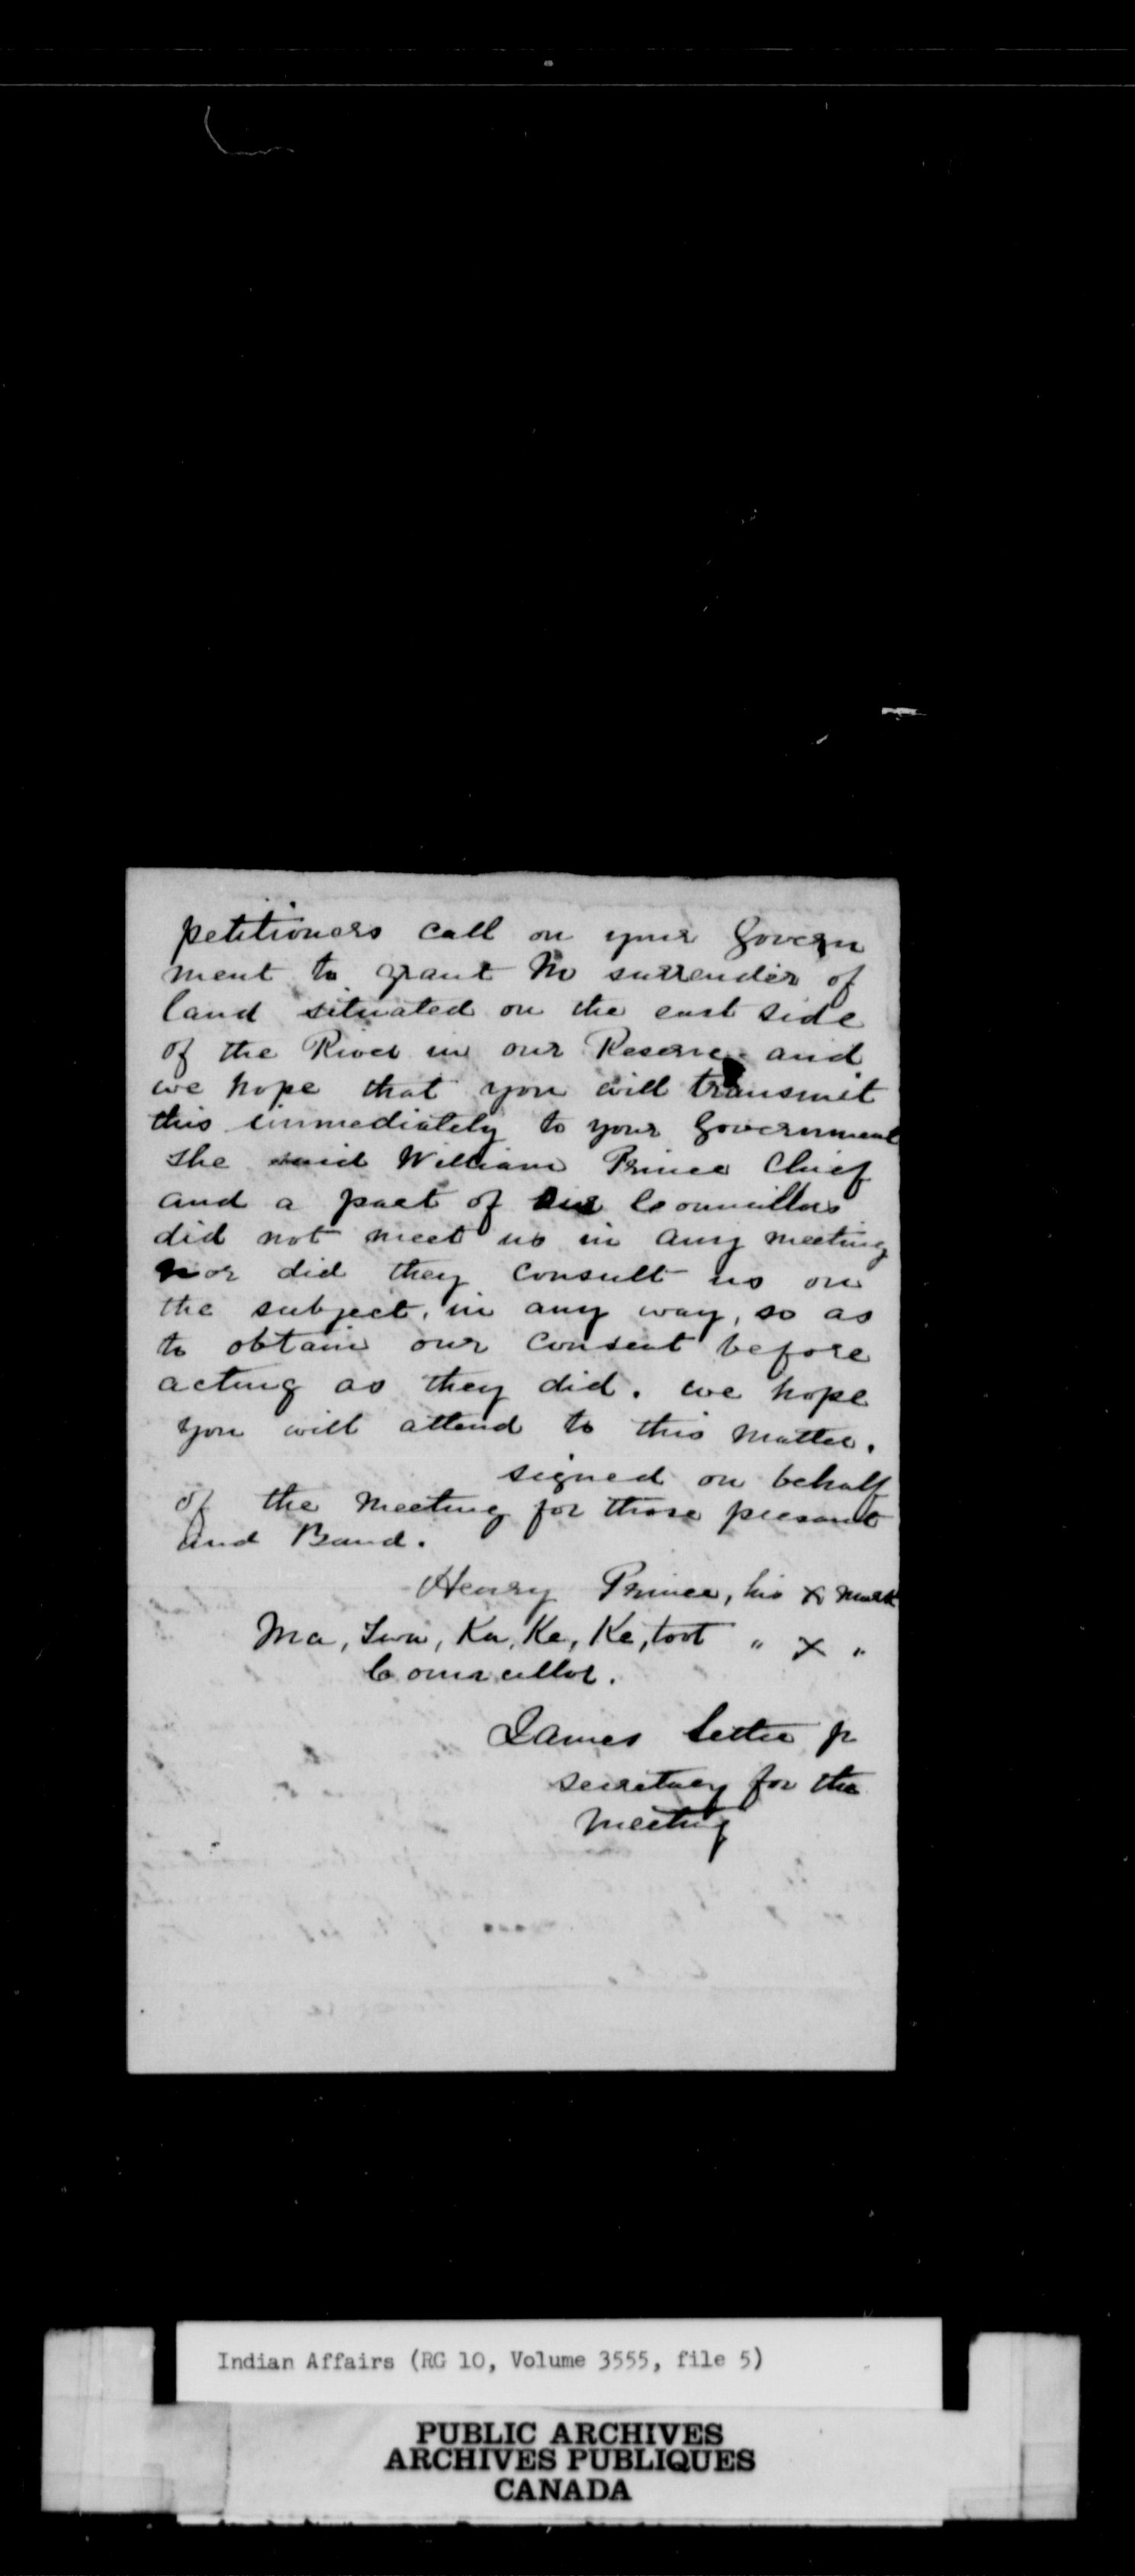 petitioners call on your Govern
ment to grant no surrender of
land situated on the east side
of the River in our Reserve and
we hope that you will transmit
this immediately to your Government
The said William Prince Chief
and a part of our Councillors
did not meet us in any meeting
nor did they consult us on
the subject, in any way, so as
to obtain our consent before
acting as they did. we hope
you will attend to this matter.
signed on behalf
of the meeting for those present
and Band.
Henry Prince, his X mark
Ma, Twa, Ka, Ke, Ke, toot " X "
Councillor.
James Settee jr
secretary for the
meeting
Indian Affairs (RG 10, Volume 3555, file 5)
PUBLIC ARCHIVES
ARCHIVES PUBLIQUES
CANADA